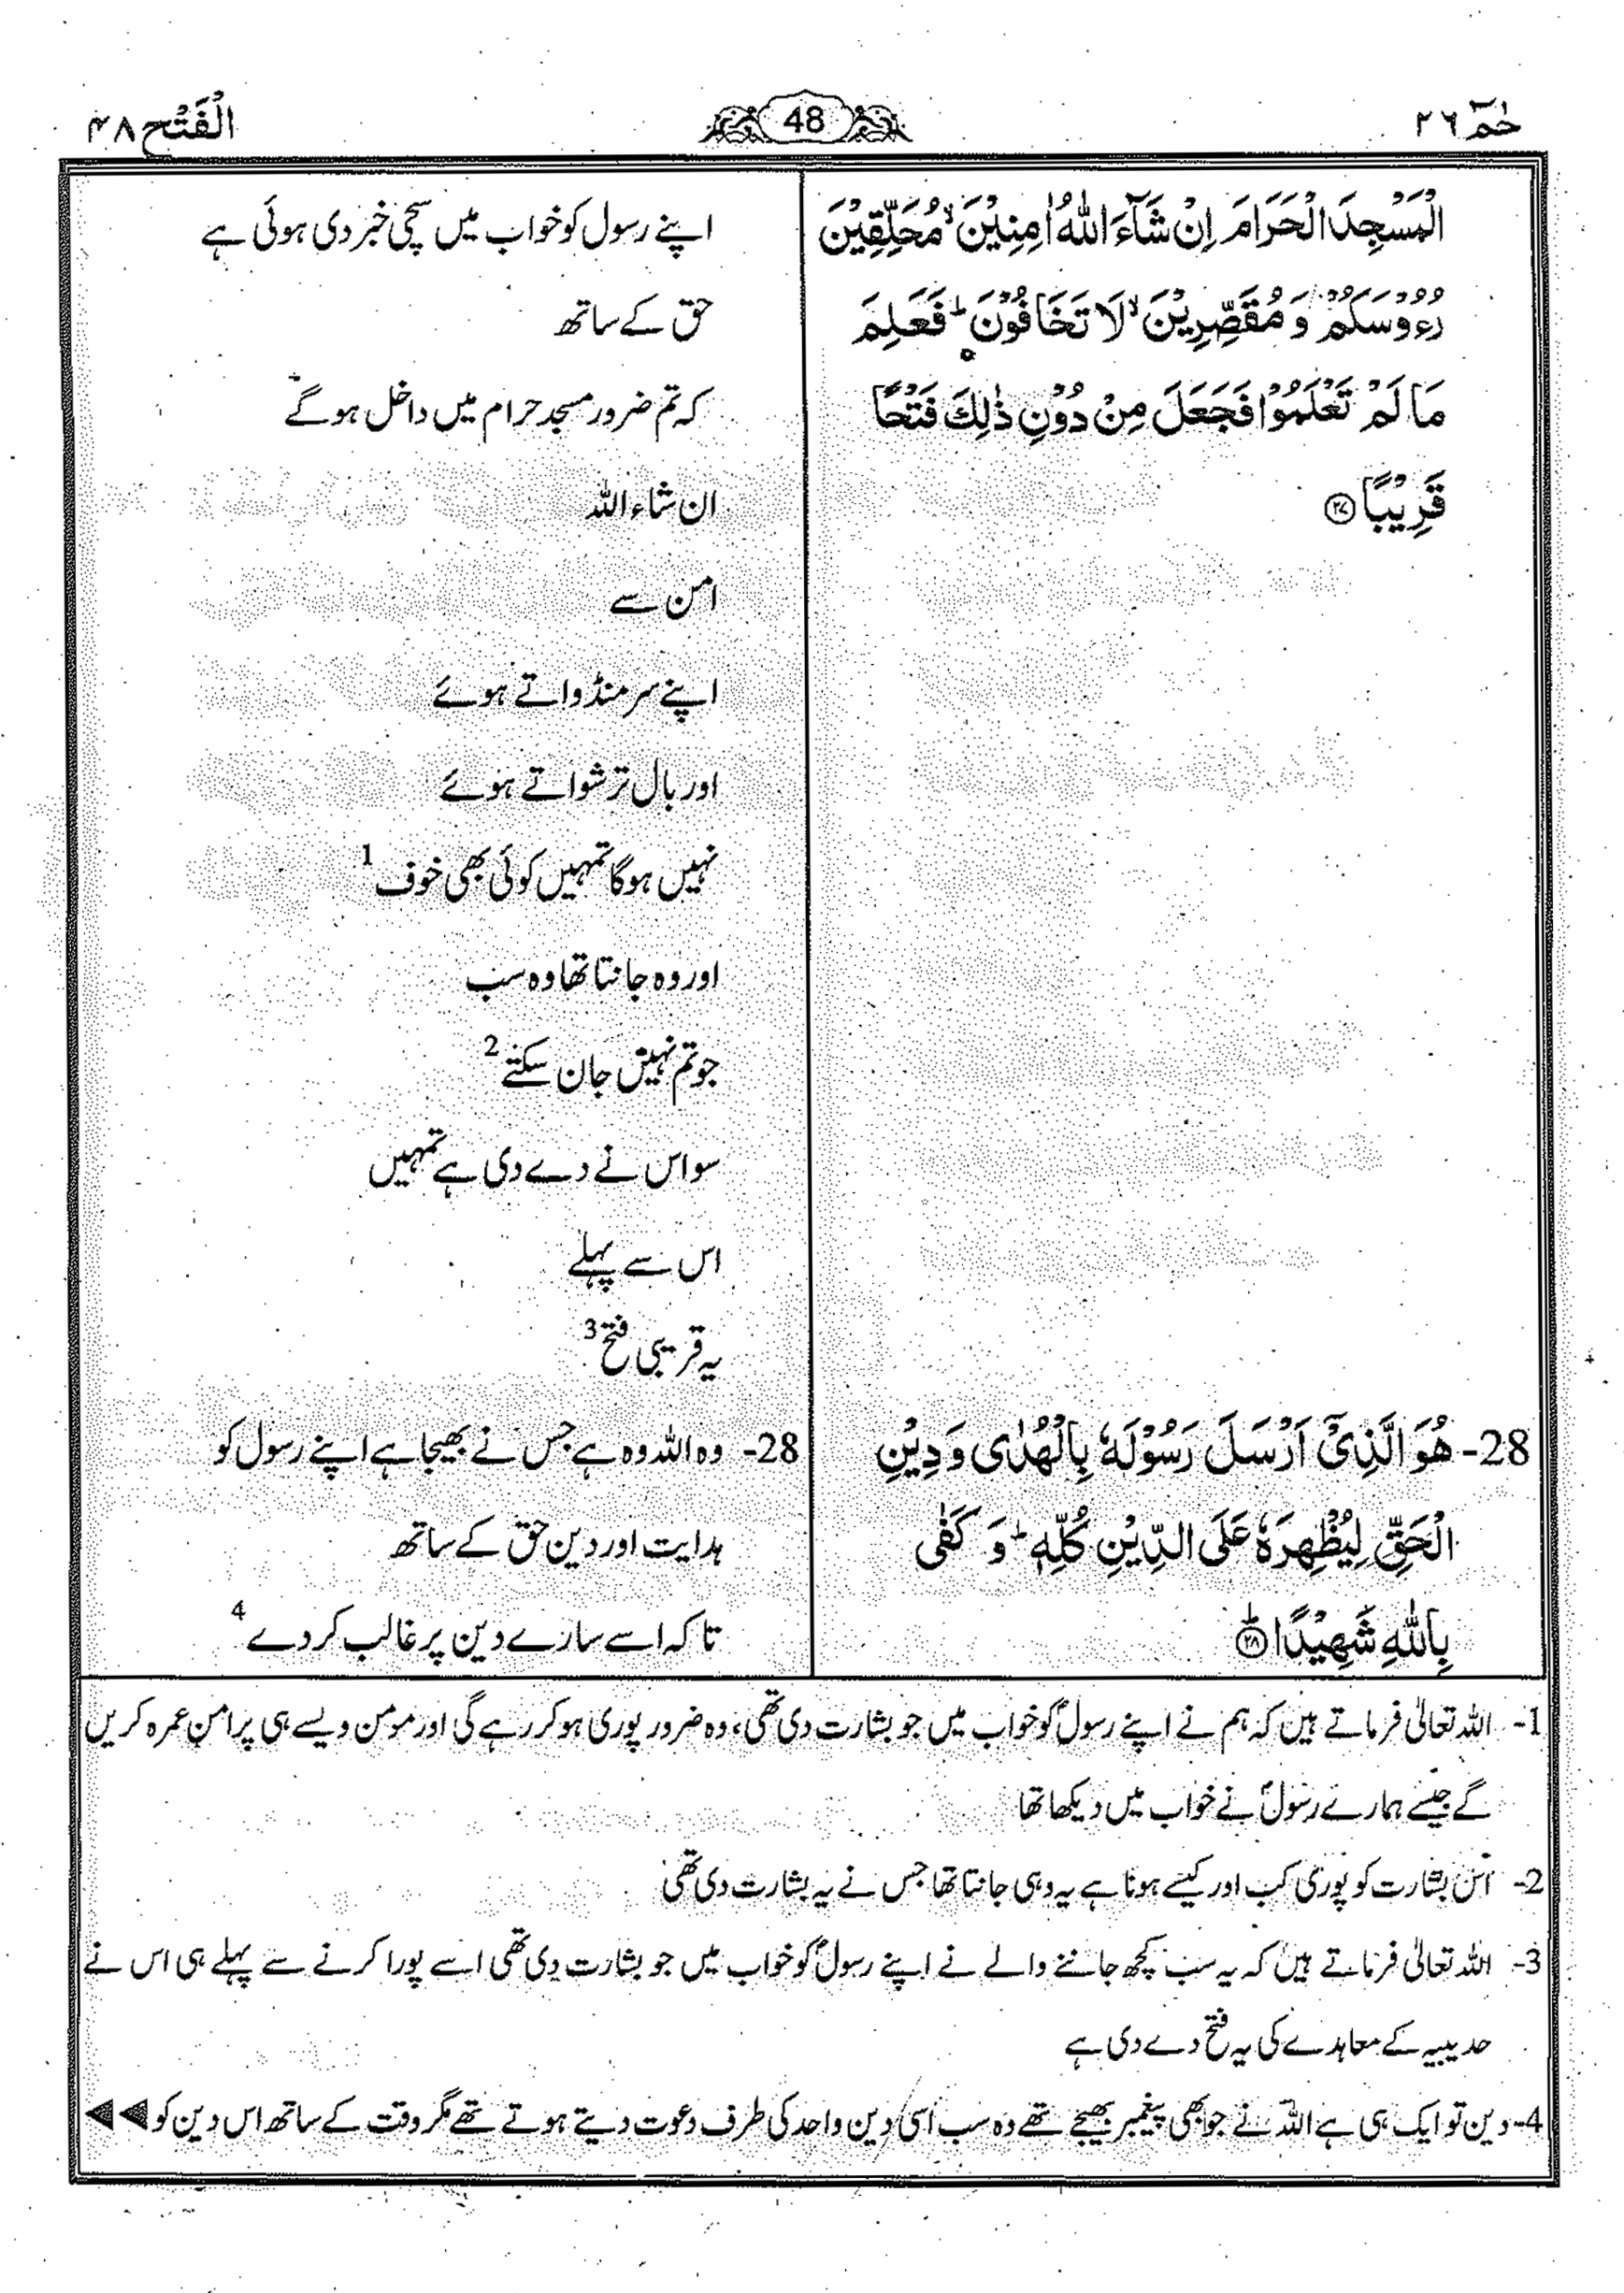 حٰمٓ ٢٦
48
الْفَتْح ٤٨
الْمَسْجِدَ الْحَرَامَ اِنْ شَآءَ اللّٰهُ اٰمِنِيْنَ ۙ مُحَلِّقِيْنَ
رُءُوْسَكُمْ وَ مُقَصِّرِيْنَ ۙ لَا تَخَافُوْنَ ؕ فَعَلِمَ
مَا لَمْ تَعْلَمُوْا فَجَعَلَ مِنْ دُوْنِ ذٰلِكَ فَتْحًا
قَرِيْبًا ﴿٢٧﴾
اپنے رسول کو خواب میں سچی خبر دی ہوئی ہے
حق کے ساتھ
کہ تم ضرور مسجد حرام میں داخل ہو گے
ان شاء اللہ
امن سے
اپنے سر منڈواتے ہوئے
اور بال ترشواتے ہوئے
نہیں ہوگا تمہیں کوئی بھی خوف 1
اور وہ جانتا تھا وہ سب
جو تم نہیں جان سکتے 2
سو اس نے دے دی ہے تمہیں
اس سے پہلے
یہ قریبی فتح 3
28- هُوَ الَّذِيْۤ اَرْسَلَ رَسُوْلَهٗ بِالْهُدٰى وَ دِيْنِ
الْحَقِّ لِيُظْهِرَهٗ عَلَى الدِّيْنِ كُلِّهٖ ؕ وَ كَفٰى
بِاللّٰهِ شَهِيْدًا ﴿٢٨﴾
28- وہ اللہ وہ ہے جس نے بھیجا ہے اپنے رسول کو
ہدایت اور دین حق کے ساتھ
تا کہ اسے سارے دین پر غالب کر دے 4
1- اللہ تعالٰی فرماتے ہیں کہ ہم نے اپنے رسولؐ کو خواب میں جو بشارت دی تھی، وہ ضرور پوری ہو کر رہے گی اور مومن ویسے ہی پر امن عمرہ کریں
گے جیسے ہمارے رسولؐ نے خواب میں دیکھا تھا
2- اس بشارت کو پوری کب اور کیسے ہونا ہے یہ وہی جانتا تھا جس نے یہ بشارت دی تھی
3- اللہ تعالٰی فرماتے ہیں کہ یہ سب کچھ جاننے والے نے اپنے رسولؐ کو خواب میں جو بشارت دی تھی اسے پورا کرنے سے پہلے ہی اس نے
حدیبیہ کے معاہدے کی یہ فتح دے دی ہے
4- دین تو ایک ہی ہے اللہ نے جو بھی پیغمبر بھیجے تھے وہ سب اسی دین واحد کی طرف دعوت دیتے ہوتے تھے مگر وقت کے ساتھ اس دین کو ◀◀